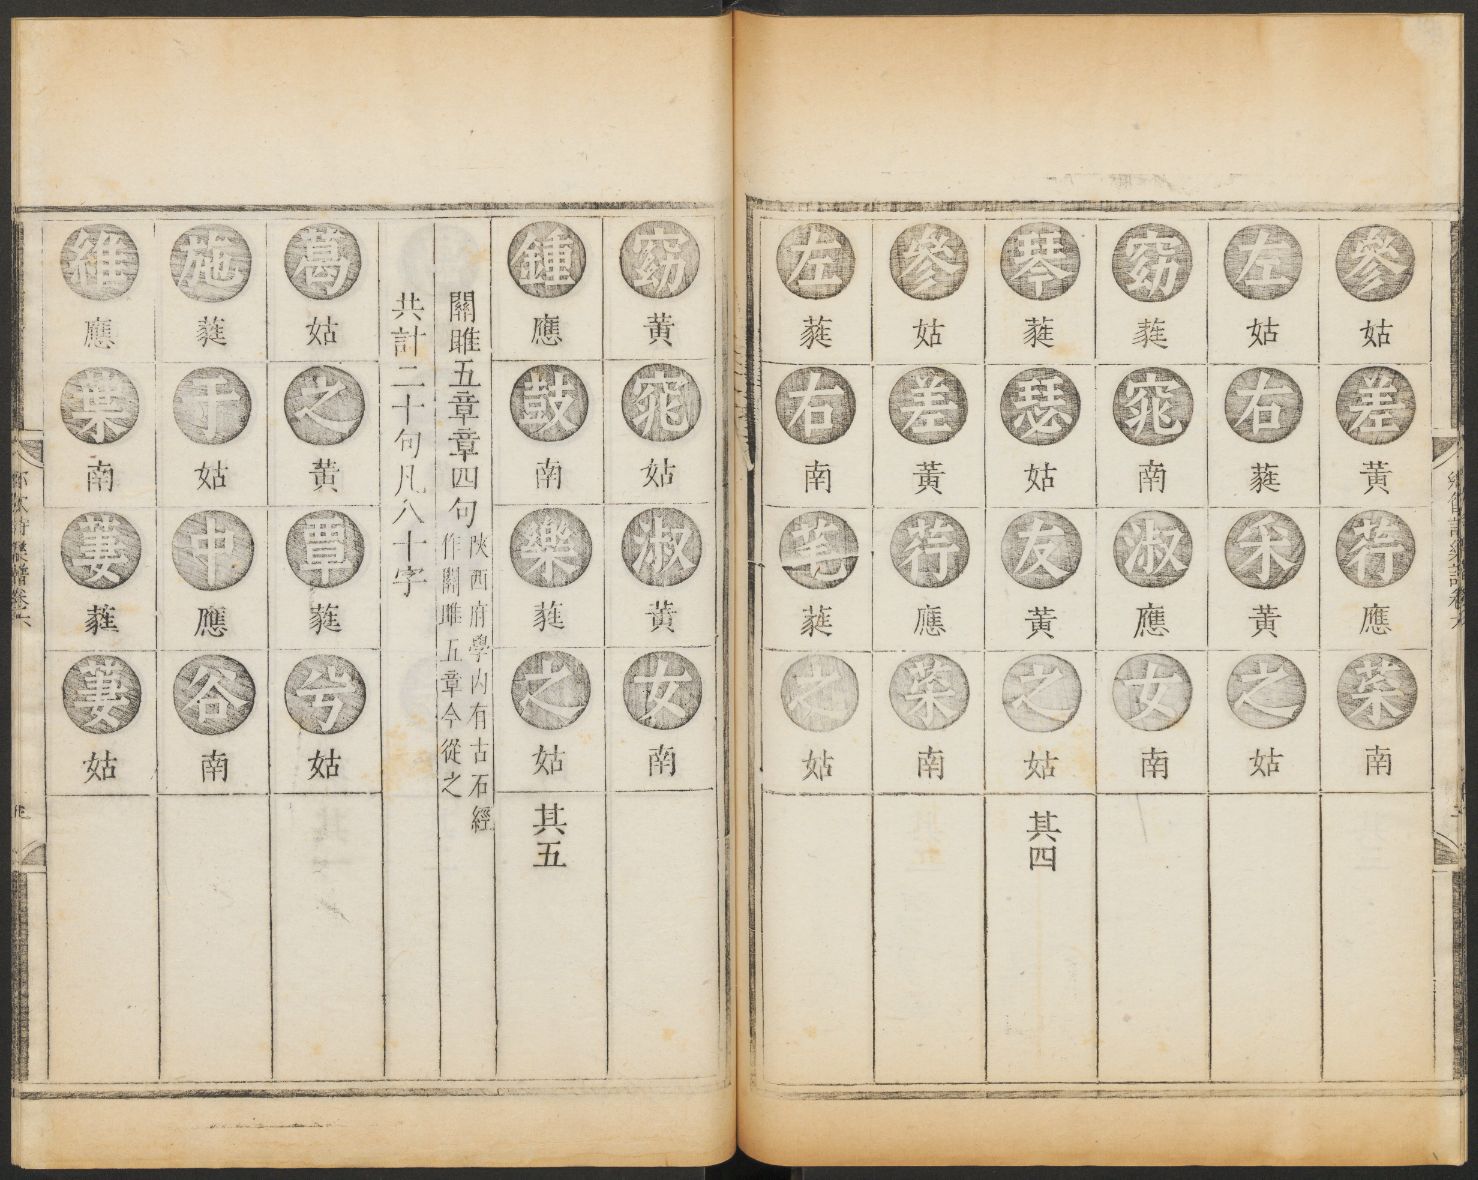 參姑差黃荇應菜南
左姑右蕤采黃之姑
窈蕤窕南淑應女南
琴蕤瑟姑友黃之姑其四
參姑差黃荇應菜南
左蕤右南芼蕤之姑
窈黃窕姑淑黃女南
鍾應鼓南樂蕤之姑其五
關雎五章章四句
陜西府學內有古石經
作關雎五章今從之
共計二十句凡八十字
葛姑之黃覃蕤兮姑
施蕤于姑中應谷南
維應葉南萋蕤萋姑